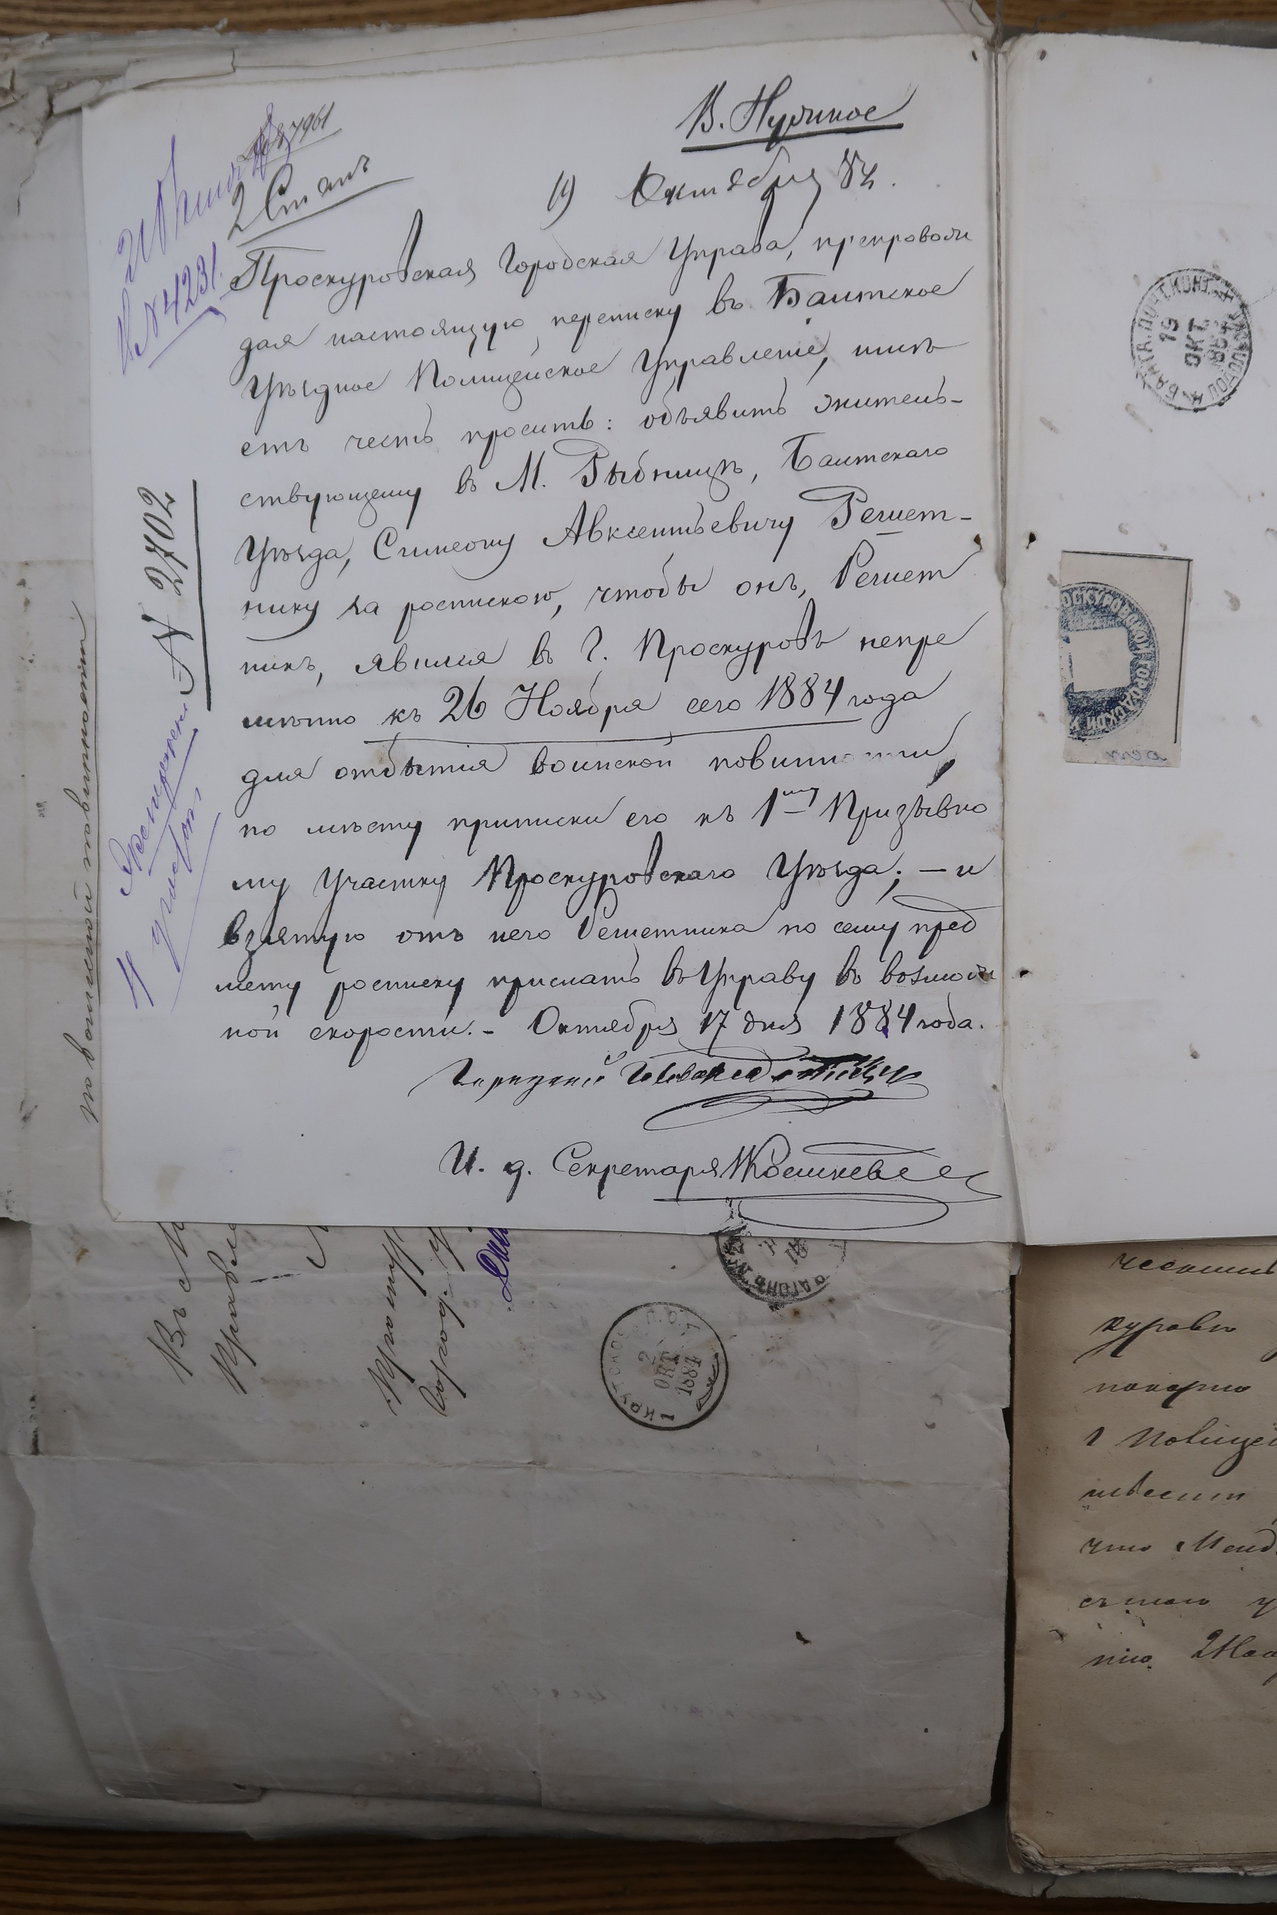 В. Нужное
19 Октября 84.
№ 7961
2 Стан
№ 4231.
Проскуровская Городская Управа, препровож
дая настоящую переписку въ Балтское
Уѣздное Полицейское Управленіе, имѣ
етъ честь просить: объявить житель-
ствующему въ М. Рыбницѣ, Балтскаго
Уѣзда, Симеону Авксентьевичу Решет-
нику за роспискою, чтобы онъ, Решет
никъ, явился въ г. Проскуровъ непре
мѣнно къ 26 Ноября сего 1884 года
для отбытія воинской повинности,
по мѣсту приписки его къ 1му Призывно
му Участку Проскуровскаго Уѣзда; – и
взятую отъ него Решетника по сему пред
мету росписку прислать въ Управу въ возмож
ной скорости. – Октября 17 дня 1884 года.
И. д. Секретаря
№ 2702
по воинской повинности
1 участка
19
ОКТ
1884
ПРОСКУРОВСКОЙ ГОРОДСКОЙ
2
ОКТ
1884
Въ
куровъ
покорно
г Полицей
что